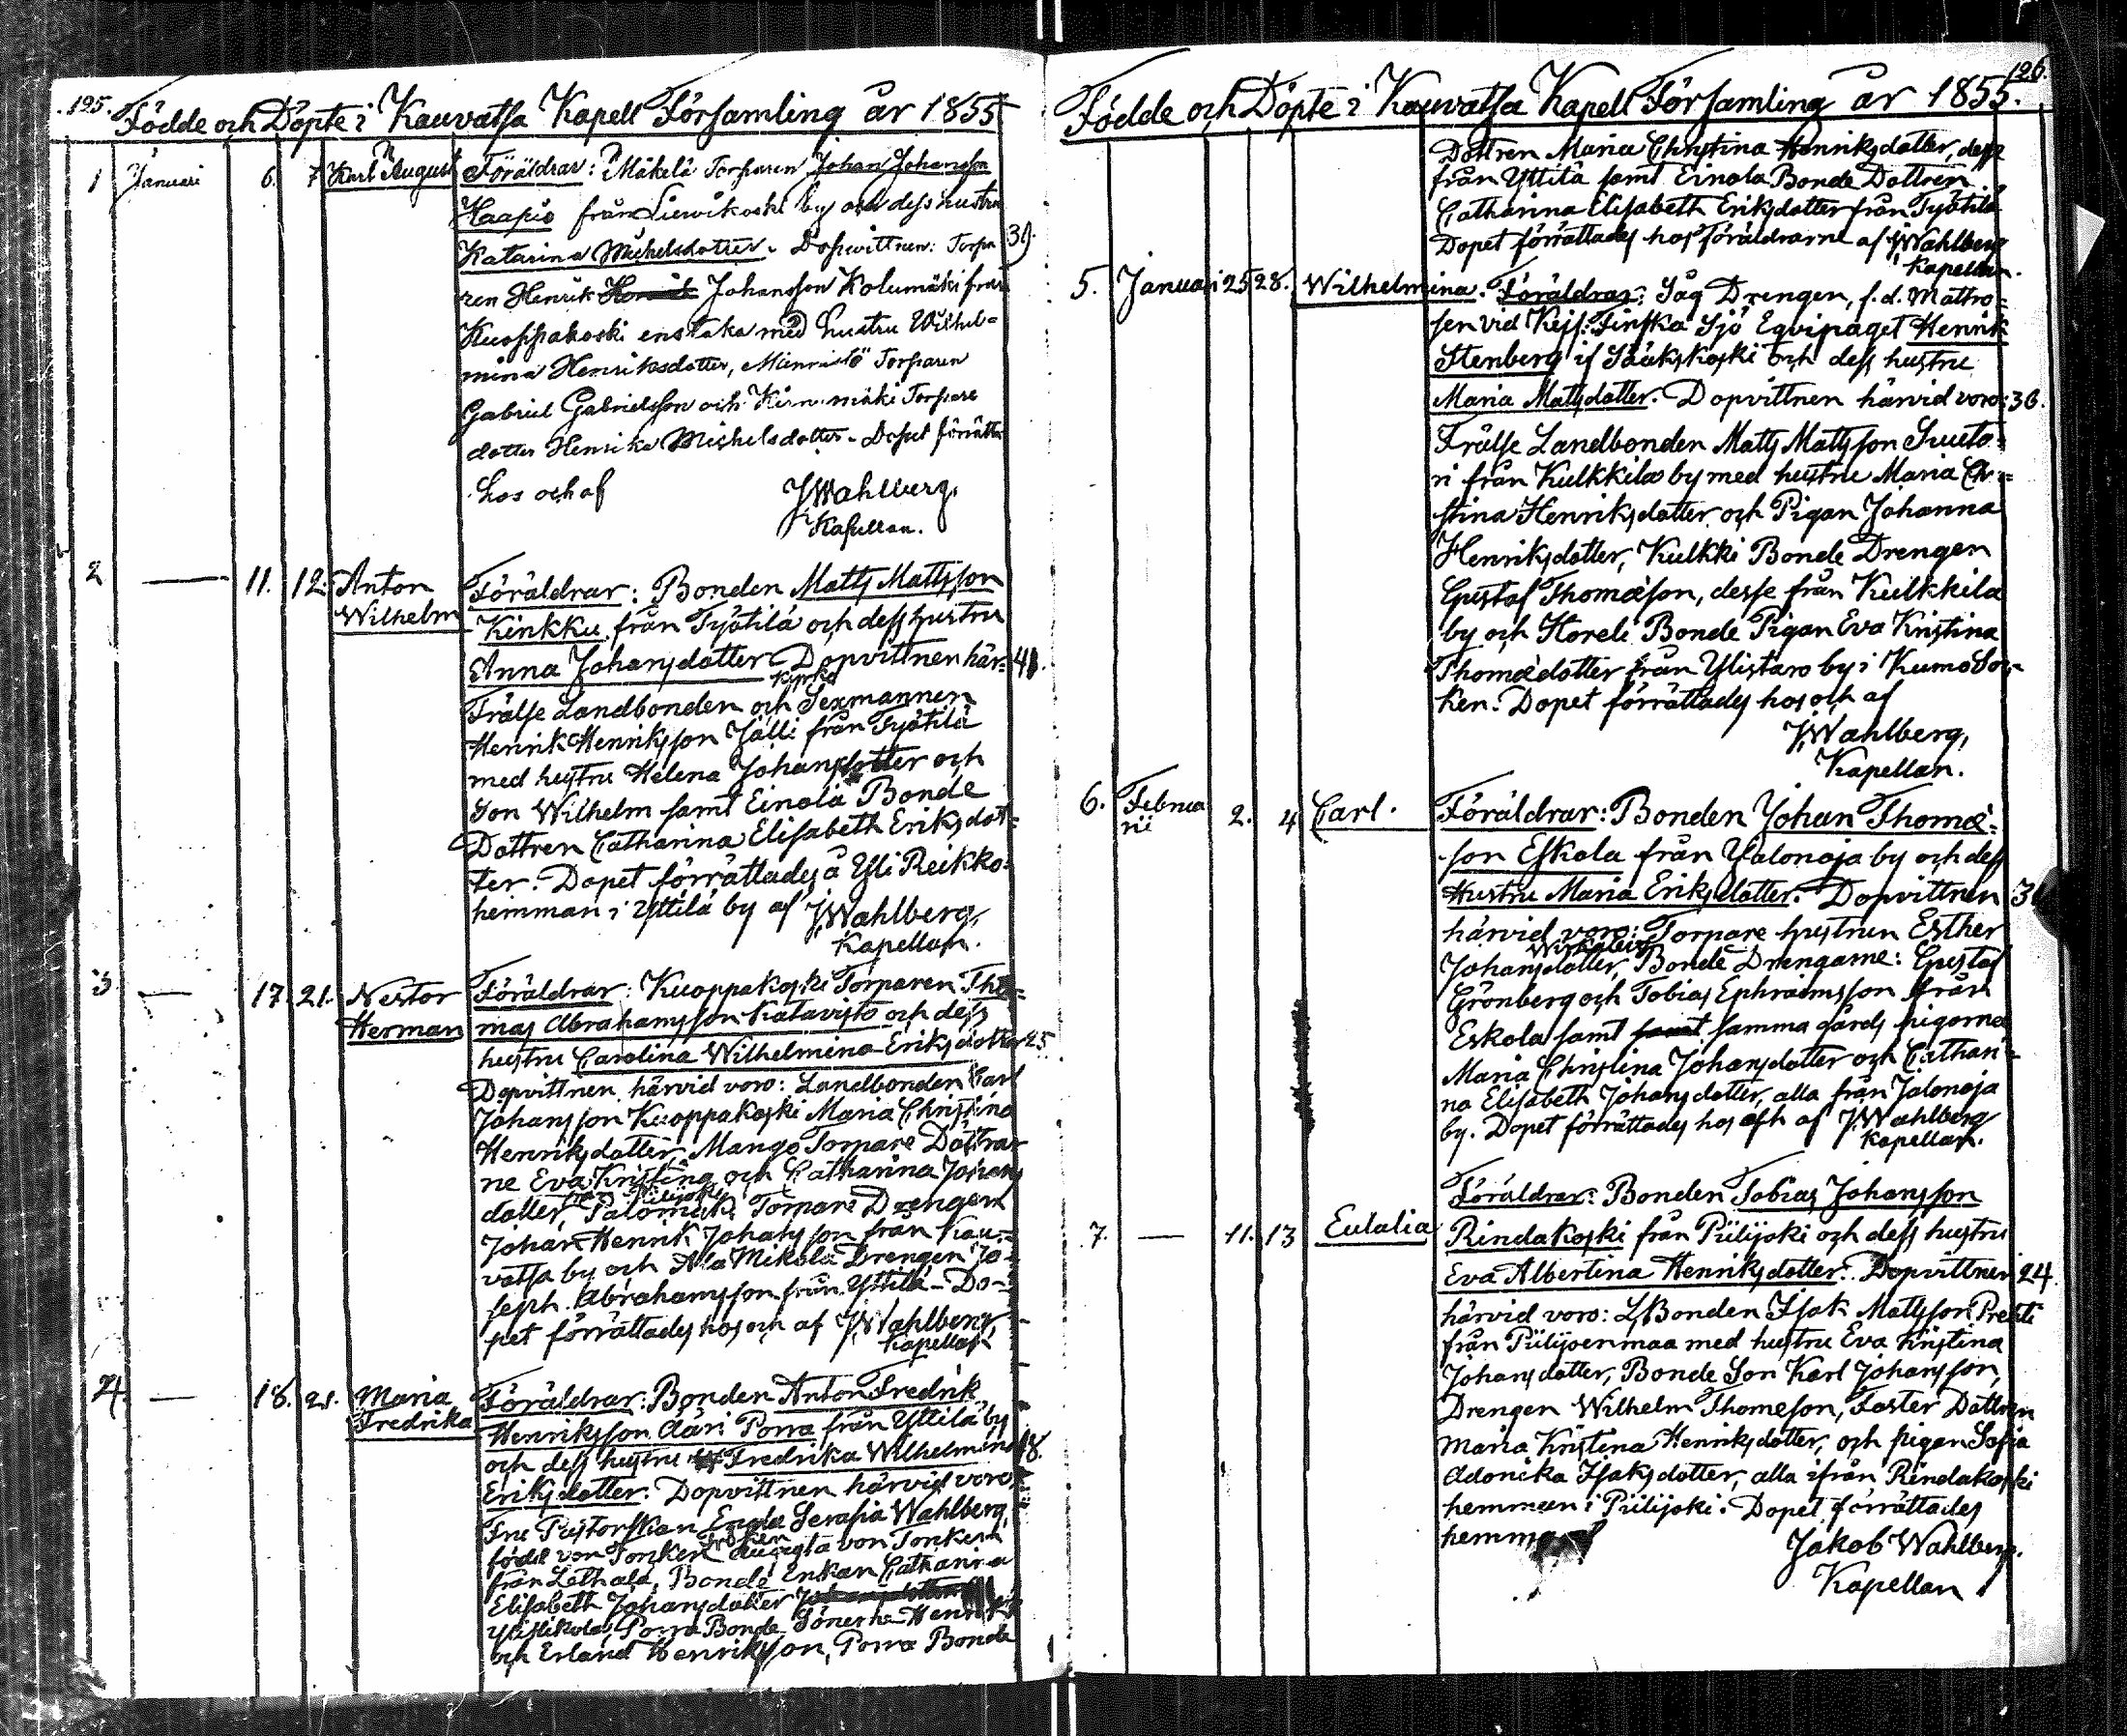 125.
Födde och Döpte i Kauvatsa Kapell Församling år 1855
1 Januari 6. 7 Karl August Föräldrar: Mäkelä Torparen Johan Johansson
Haapio från Liewikoski by och dess hustru
Katarina Michelsdotter. Dopwittnen: Torpa 39.
ren Henrik Johansson Kolumäki från
Kuoppakoski enstaka med hustru Wilhel=
mina Henriksdotter, Torparen
Gabriel Gabrielsson och mäki Torpare
dotter Henrika Michelsdotter. Dopet förrätta
hos och af JWahlberg.
Kapellan.
2 — 11. 12. Anton
Wilhelm
Föräldrar: Bonden Matts Mattsson
Kinkku från Työtilä och dess hustru
Anna Johansdotter Dopvittnen här= 41.
kyrko
Frälse Landbonden och Sexmannen
Henrik Henriksson Jälli från Työtilä
med hustru Helena Johansdotter och
Son Wilhelm samt Einola Bonde
Dottren Catharina Elisabeth Eriksdot=
ter. Dopet förrättades å Yli Reikko=
hemman i Yttilä by af JWahlberg,
Kapellan.
3 — 17. 21. Nestor
Herman
Föräldrar: Kuoppakoski Torparen Tho=
mas Abrahamsson Katavisto och dess
hustru Carolina Wilhelmina Eriksdotter 25
Dopvittnen härvid voro: Landbonden Carl
Johansson Kuoppakoski Maria Christina
Henriksdotter, Mango Torpare Döttrar
ne Eva Kristina och Catharina Johans
från Piilijoki
dotter, Palomäki Torpare Drengen
Johan Henrik Johansson från Kau=
vatsa by och Ala Mikola Drengen Jo=
seph Abrahamsson från Yttilä - Do=
pet förrättades hos och af JWahlberg,
Kapellan
4. — 18. 21. Maria
Fredrika
Föräldrar: Bonden Anton Fredrik
Henriksson Porra från Yttilä by
och dess hustru Fredrika Wilhelmina 18.
Eriksdotter. Dopvittnen härvid voro
Fru Pastorskan Serafia Wahlberg,
Fröken
född von Torcken Augusta von Torcken
från Lethala, Bonde Enkan Catharina
Elisabeth Johansdotter
Porra Bonde Sönerne Henrik
och Erland Henriksson, Porra Bonde
126.
Födde och Döpte i Kauvatsa Kapell Församling år 1855.
Dottren Maria Christina Henriksdotter, desse
från Yttilä samt Einola Bonde Dottren
Catharina Elisabeth Eriksdotter från Työtilä
Dopet förrättades hos föräldrarne af JWahlberg
Kapellan.
5. Januari 25 28. Wilhelmina. Föräldrar: Såg Drengen, f.d. Matro=
sen vid Kejs: Finska Sjö Eqvipaget Henrik
Stenberg if Sääkskoski och dess hustru
Maria Mattsdotter. Dopvittnen härvid voro: 36.
Frälse Landbonden Matts Mattsson Suuta=
ri från Kulkkila by med hustru Maria Chr=
stina Henriksdotter och Pigan Johanna
Henriksdotter, Kulkki Bonde Drengen
Gustaf Thomæson, desse från Kulkkila
by och Horeli Bonde Pigan Eva Kristina
Thomædotter från Ylistaro by i Kumo Soc=
ken. Dopet förrättades hos och af
JWahlberg,
Kapellan.
6. Februa
rii
2. 4 Carl. Föräldrar: Bonden Johan Thomæ=
son Eskola från Yalonoja by och dess
Hustru Maria Eriksdotter. Dopvittnen 3
härvid voro: Torpare hustrun Esther
Johansdotter, Bonde Drengarne: Gustaf
Grönberg och Tobias Ephraimsson från
Eskola samt samt samma gårds pigorna
Maria Christina Johansdotter och Cathari=
na Elisabeth Johansdotter, alla från Jalonoja
by. Dopet förrättades hos och af JWahlberg
Kapellan.
Föräldrar: Bonden Tobias Johansson
7. — 11. 13 Eulalia Rindakoski från Piilijoki och dess hustru
Eva Albertina Henriksdotter. Dopvittnen 24.
härvid voro: LBonden Isak Mattsson Prehti
från Piilijoenmaa med hustru Eva Kristina
Johansdotter, Bonde Son Karl Johansson,
Drengen Wilhelm Thomeson, Foster Dottren
Maria Kristina Henriksdotter, och pigan Sofia
Adonika Isaksdotter, alla ifrån Rindakoski
hemman i Piilijoki. Dopet förrättades
hemma af Jakob Wahlberg.
Kapellan